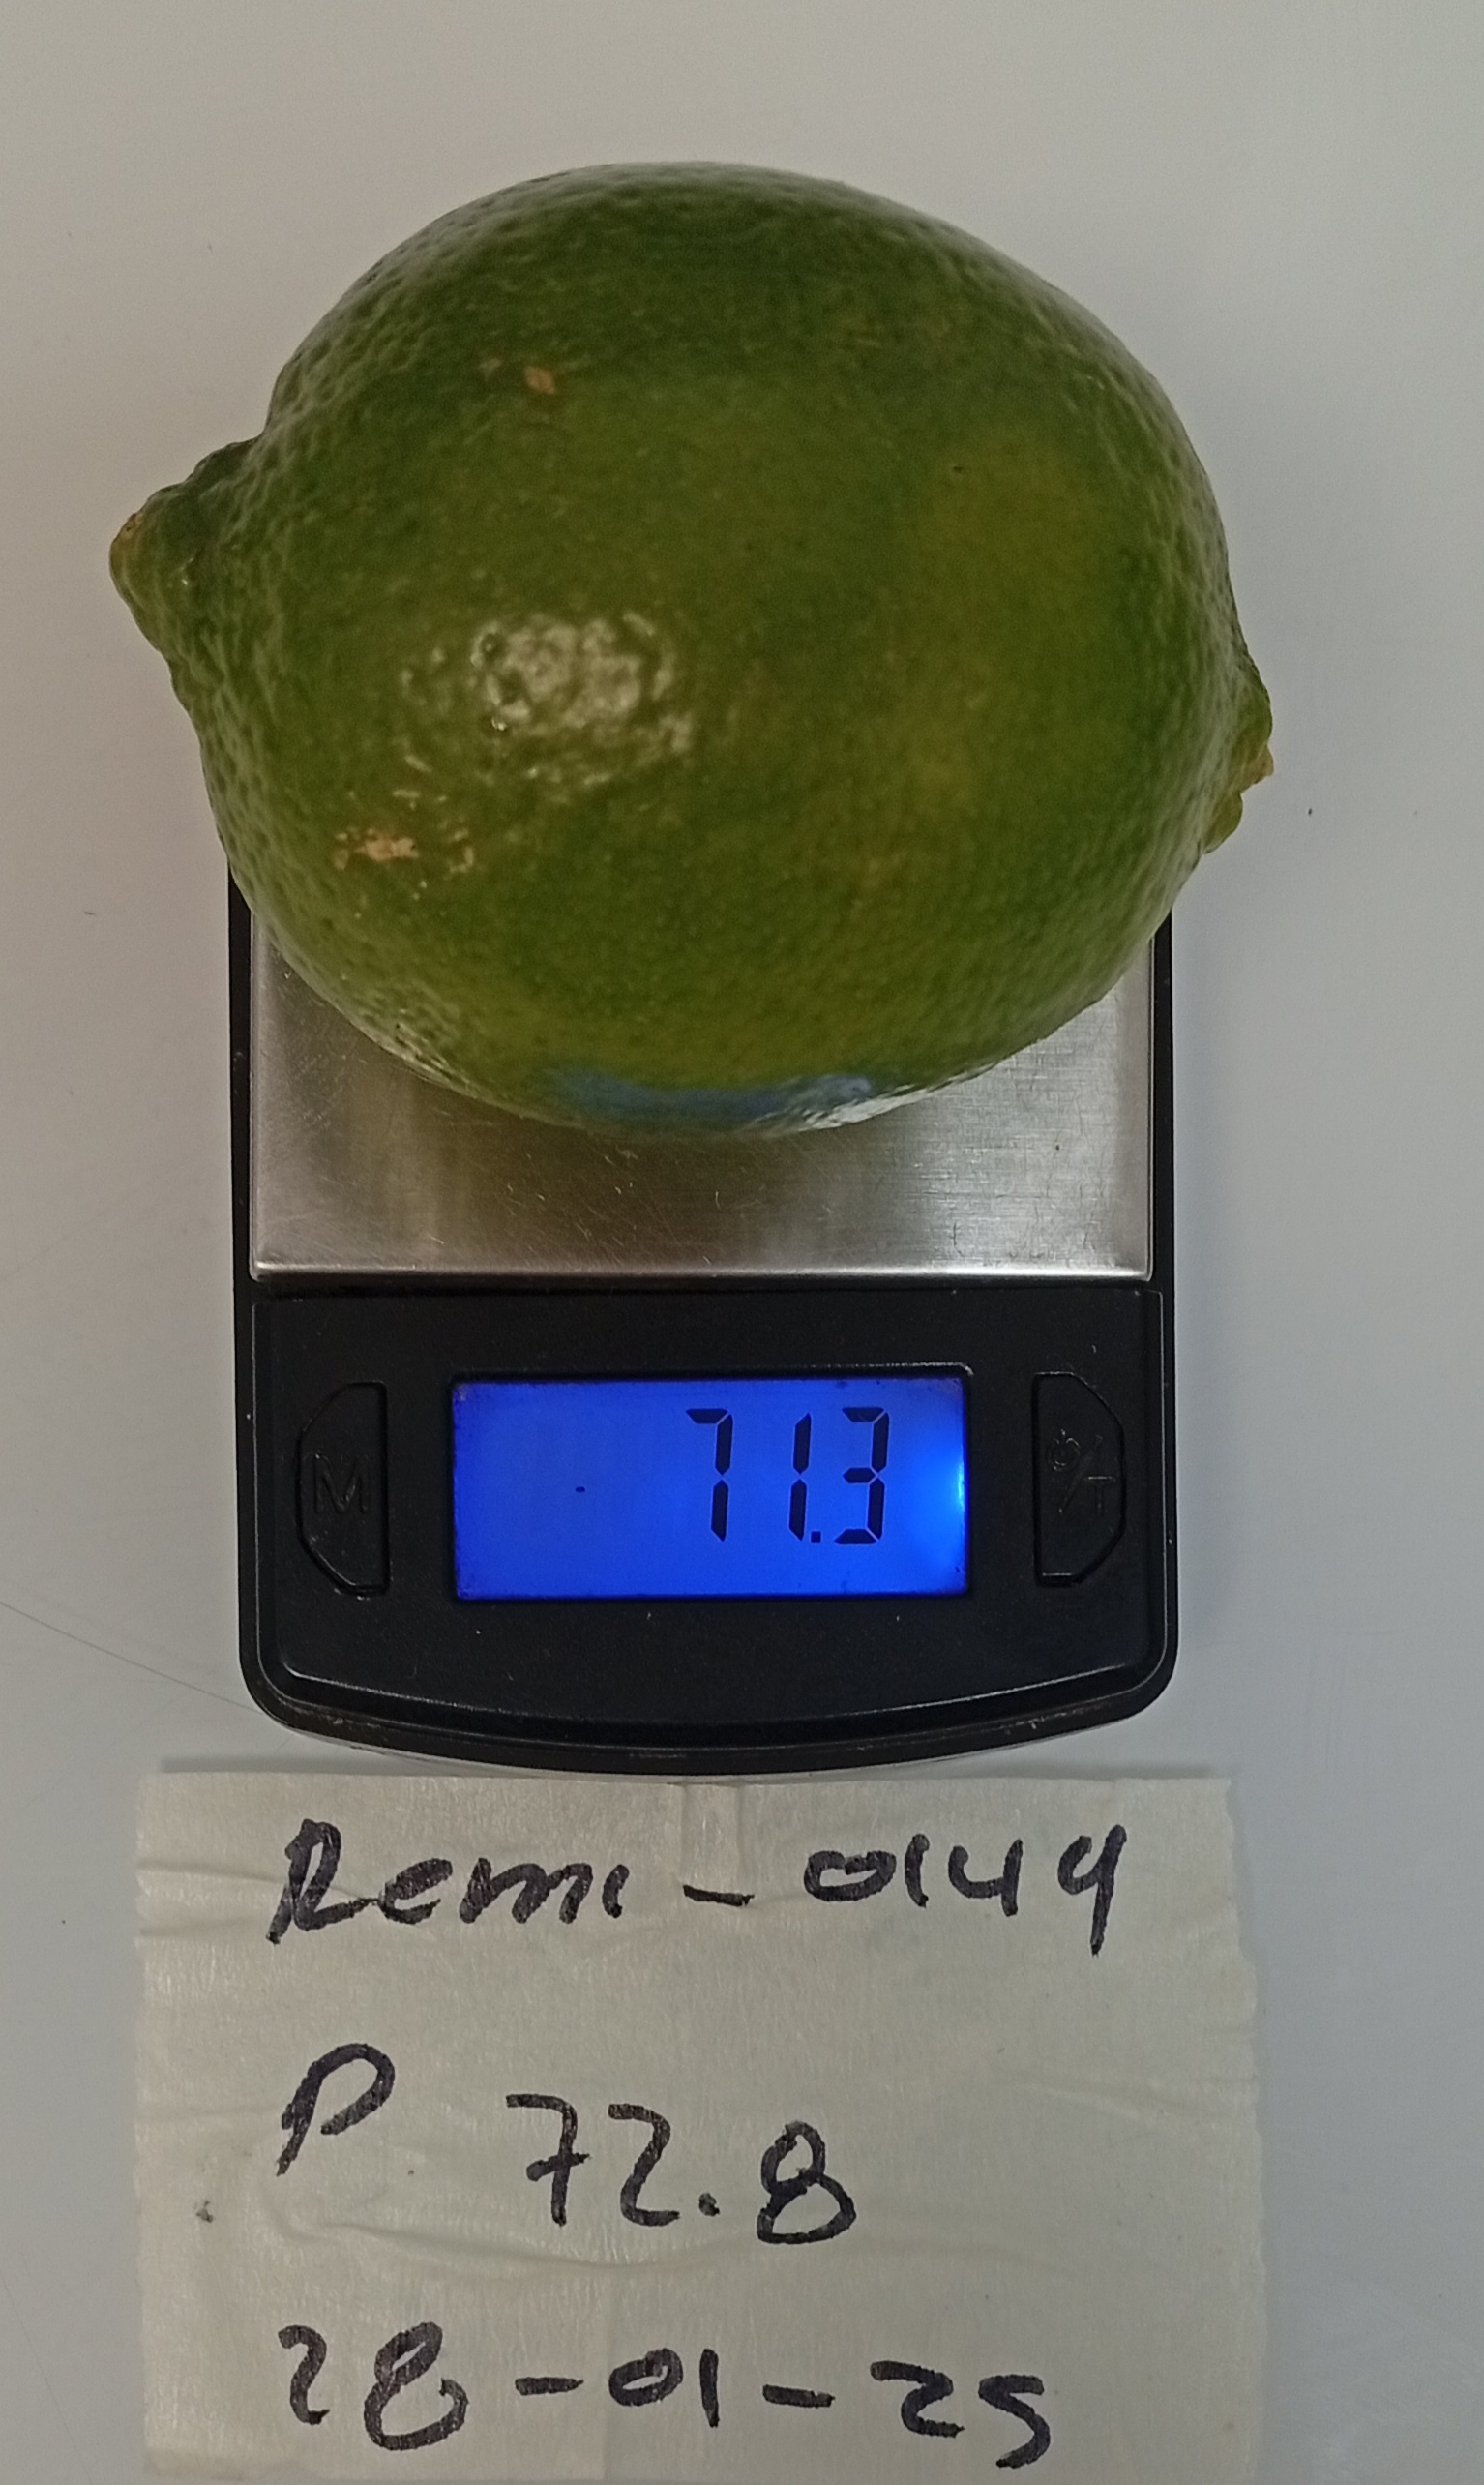 71.3
M
⏻/T
Remi-0149
P 72.8
28-01-25